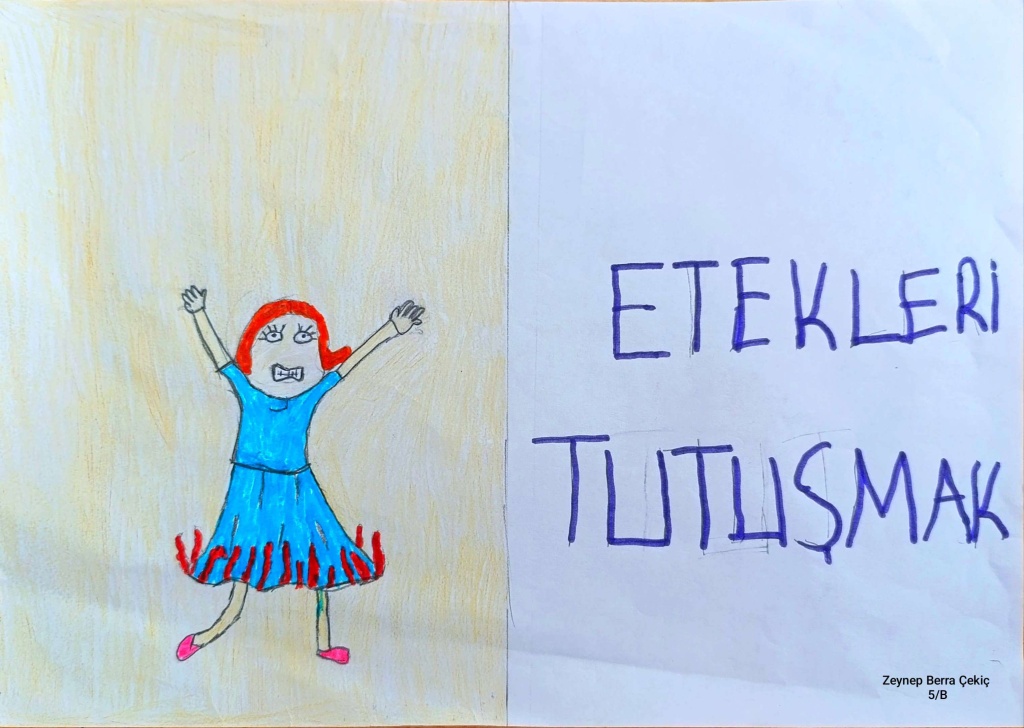 ETEKLERİ
TUTUŞMAK
Zeynep Berra Çekiç
5/B